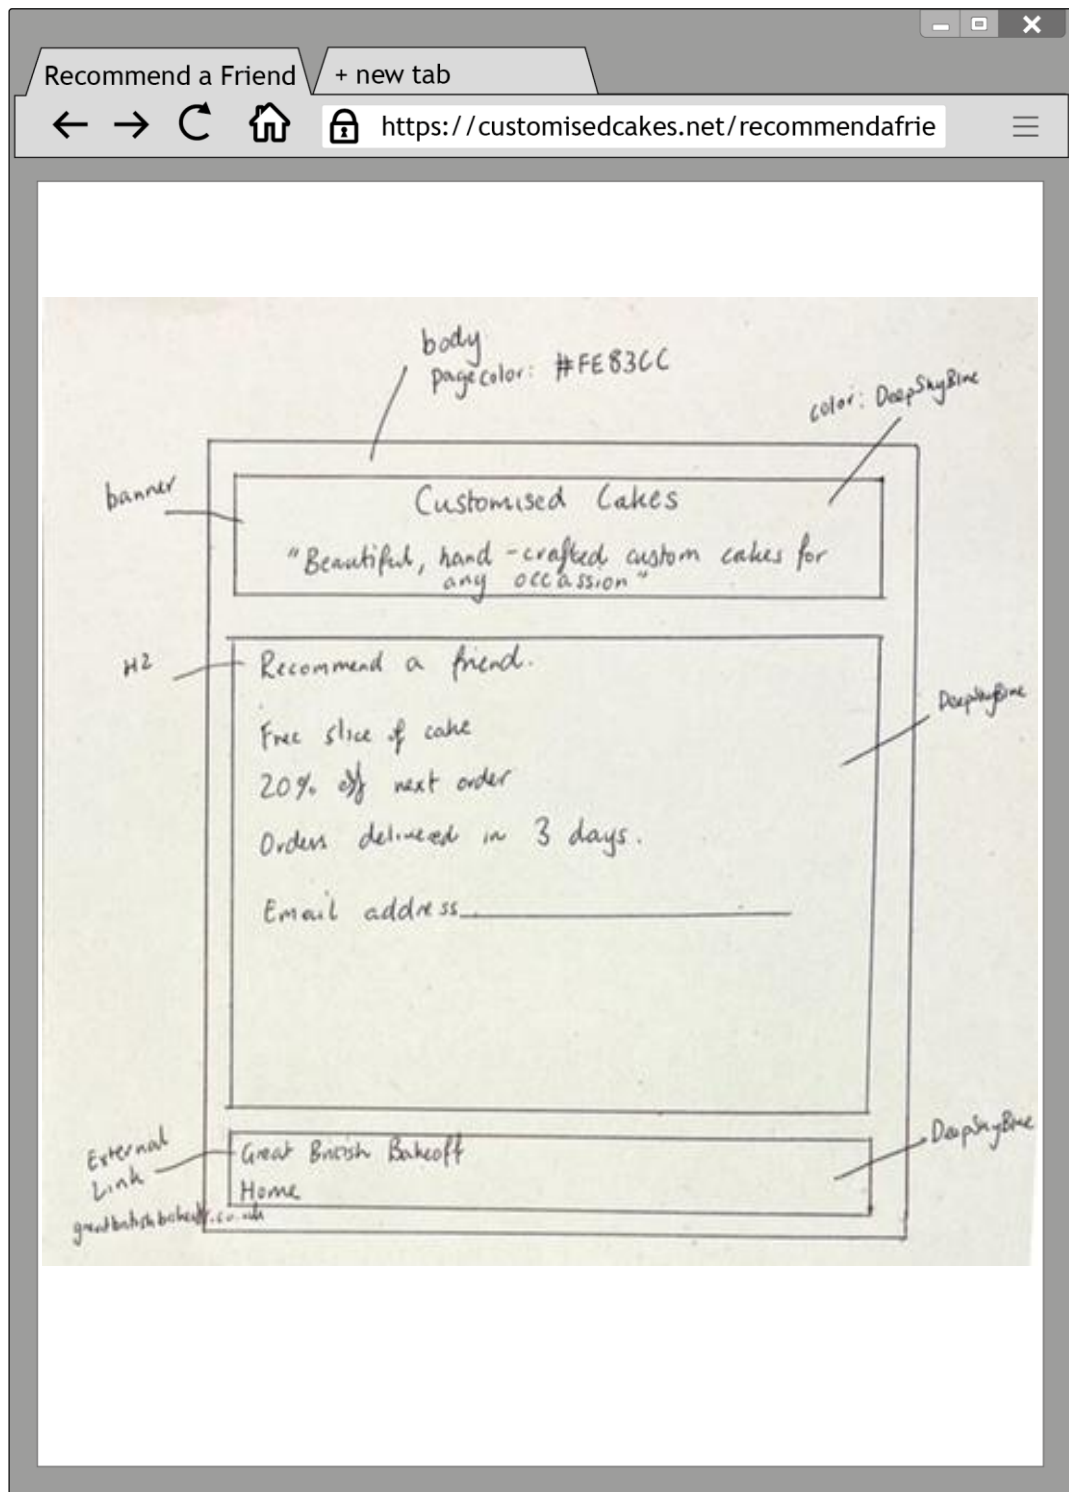 Recommend a Friend
+ new tab
https://customisedcakes.net/recommendafrie
body
pagecolor: #FE83CC
color: DeepSkyBlue
banner
Customised Cakes
"Beautiful, hand-crafted custom cakes for
any occassion"
H2
Recommend a friend.
DeepSkyBlue
Free slice of cake
20% off next order
Orders delivered in 3 days.
Email address
External
Link
greatbritishbakeoff.co.uk
Great British Bakeoff
Home
DeepSkyBlue